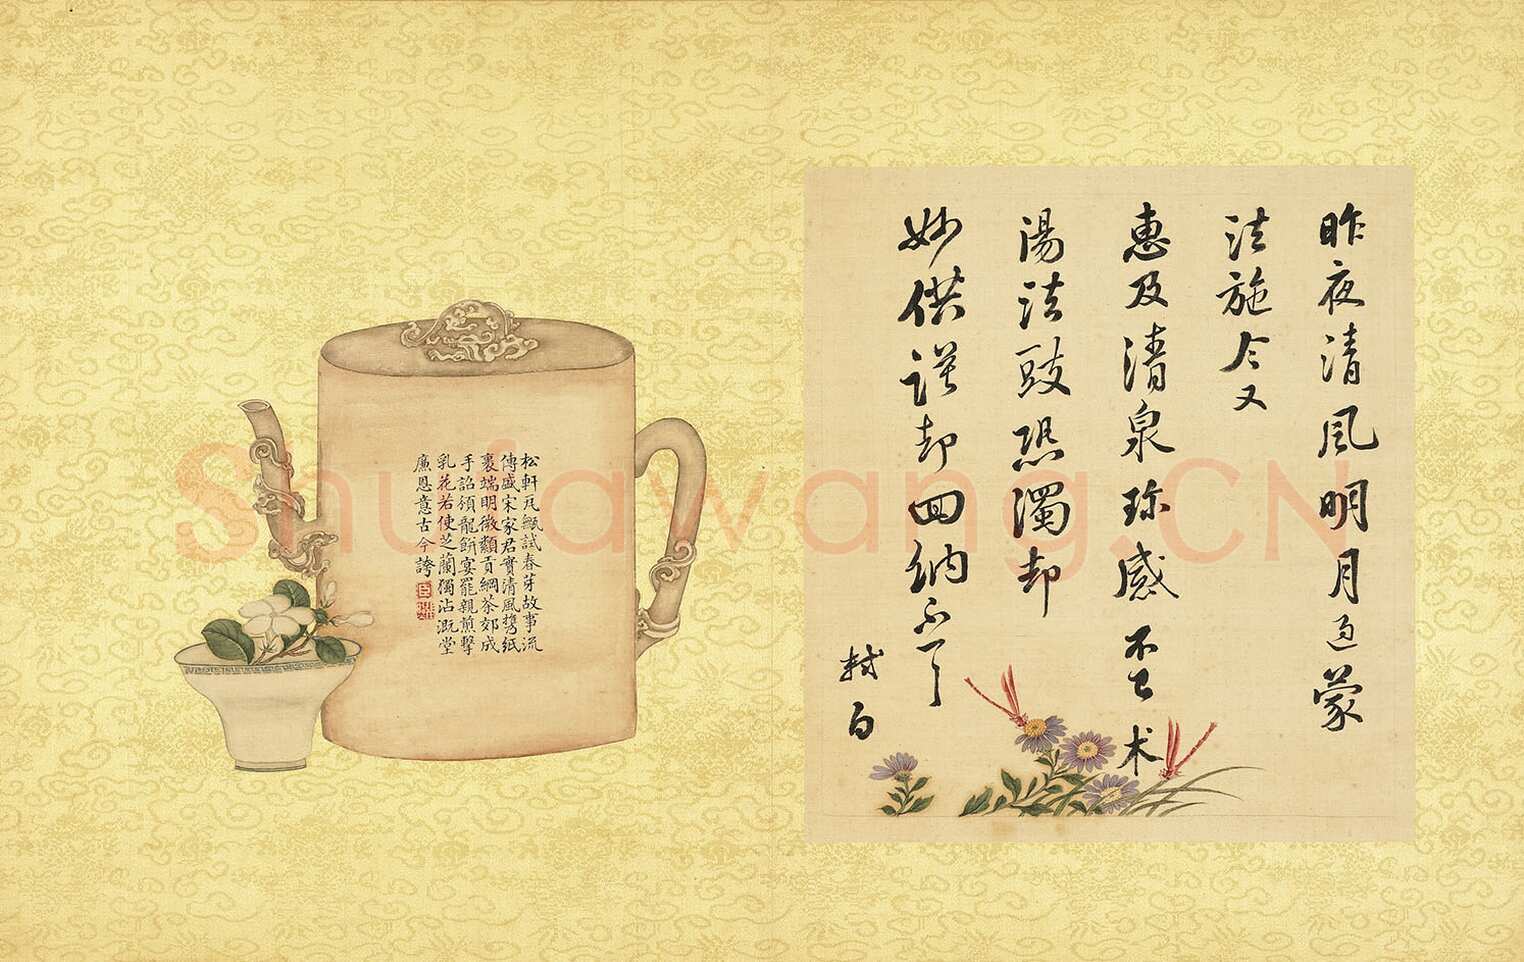 昨夜清風明月過蒙
法施今又
惠及清泉珎感不已术
湯法豉恐濁却
妙供謹却回納
軾白
松軒瓦甌試春芽故事流
傳盛宋家君實清風攜紙
裹端明微纇貢綱茶郊成
手詔頒龍餅宴罷親煎擊
乳花若使芝蘭獨沾溉堂
廉恩意古今誇
臣
Shufawang.CN